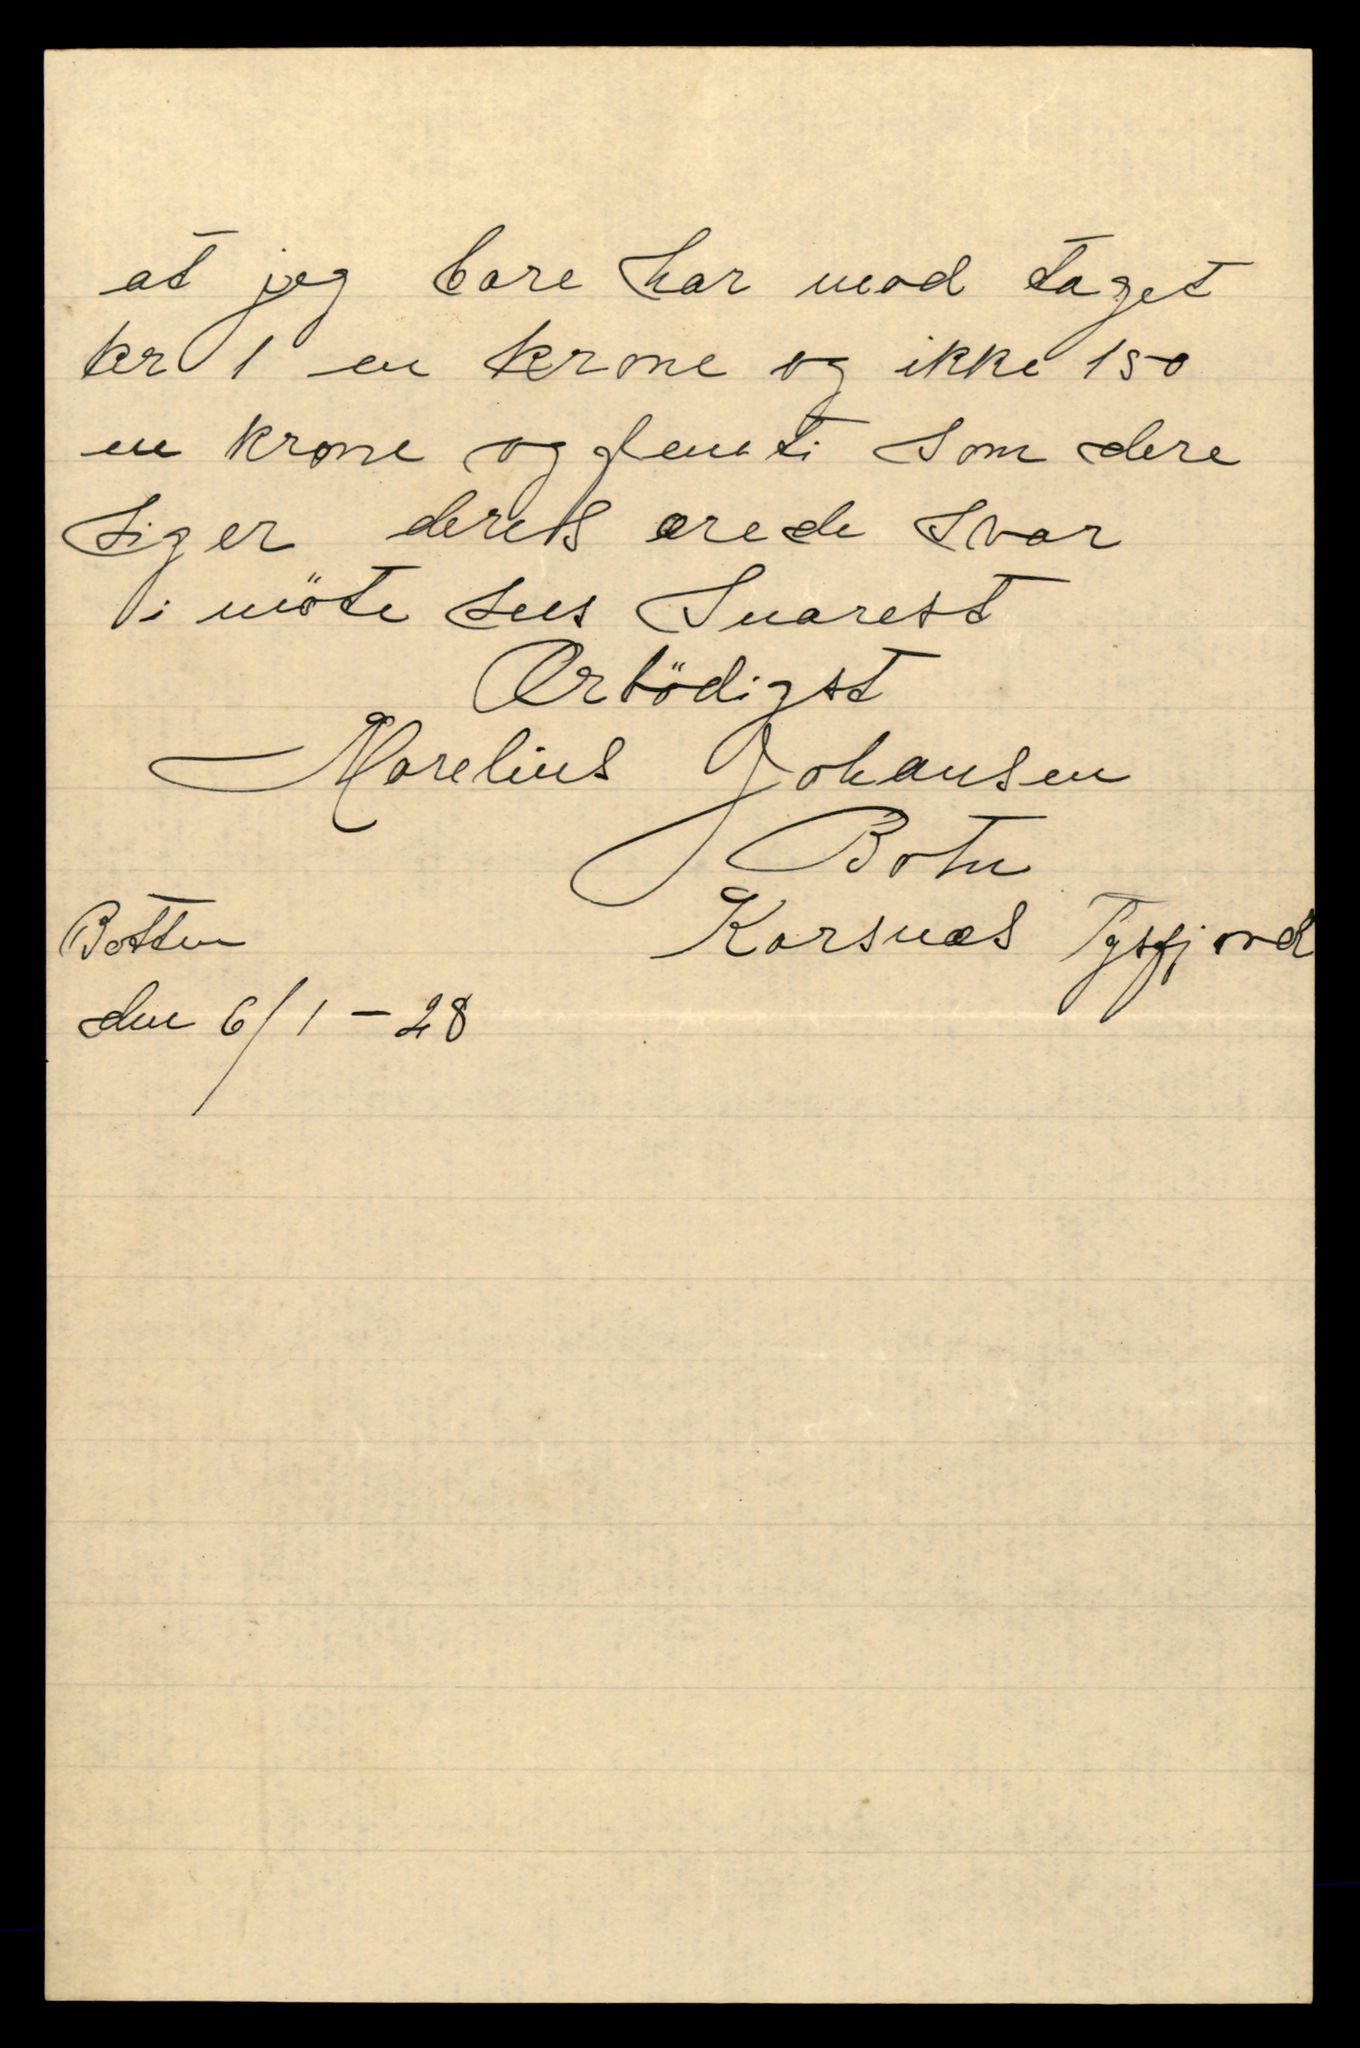 at jeg bare har mod taget
kr 1 en krone og ikke 150
en krone og femti som dere
siger deres ærede svar
i möte sees snarest
Ærbödigst
Marelius Johansen
Botn
Korsnæs Tysfjord
Botten
den 6/1 – 28